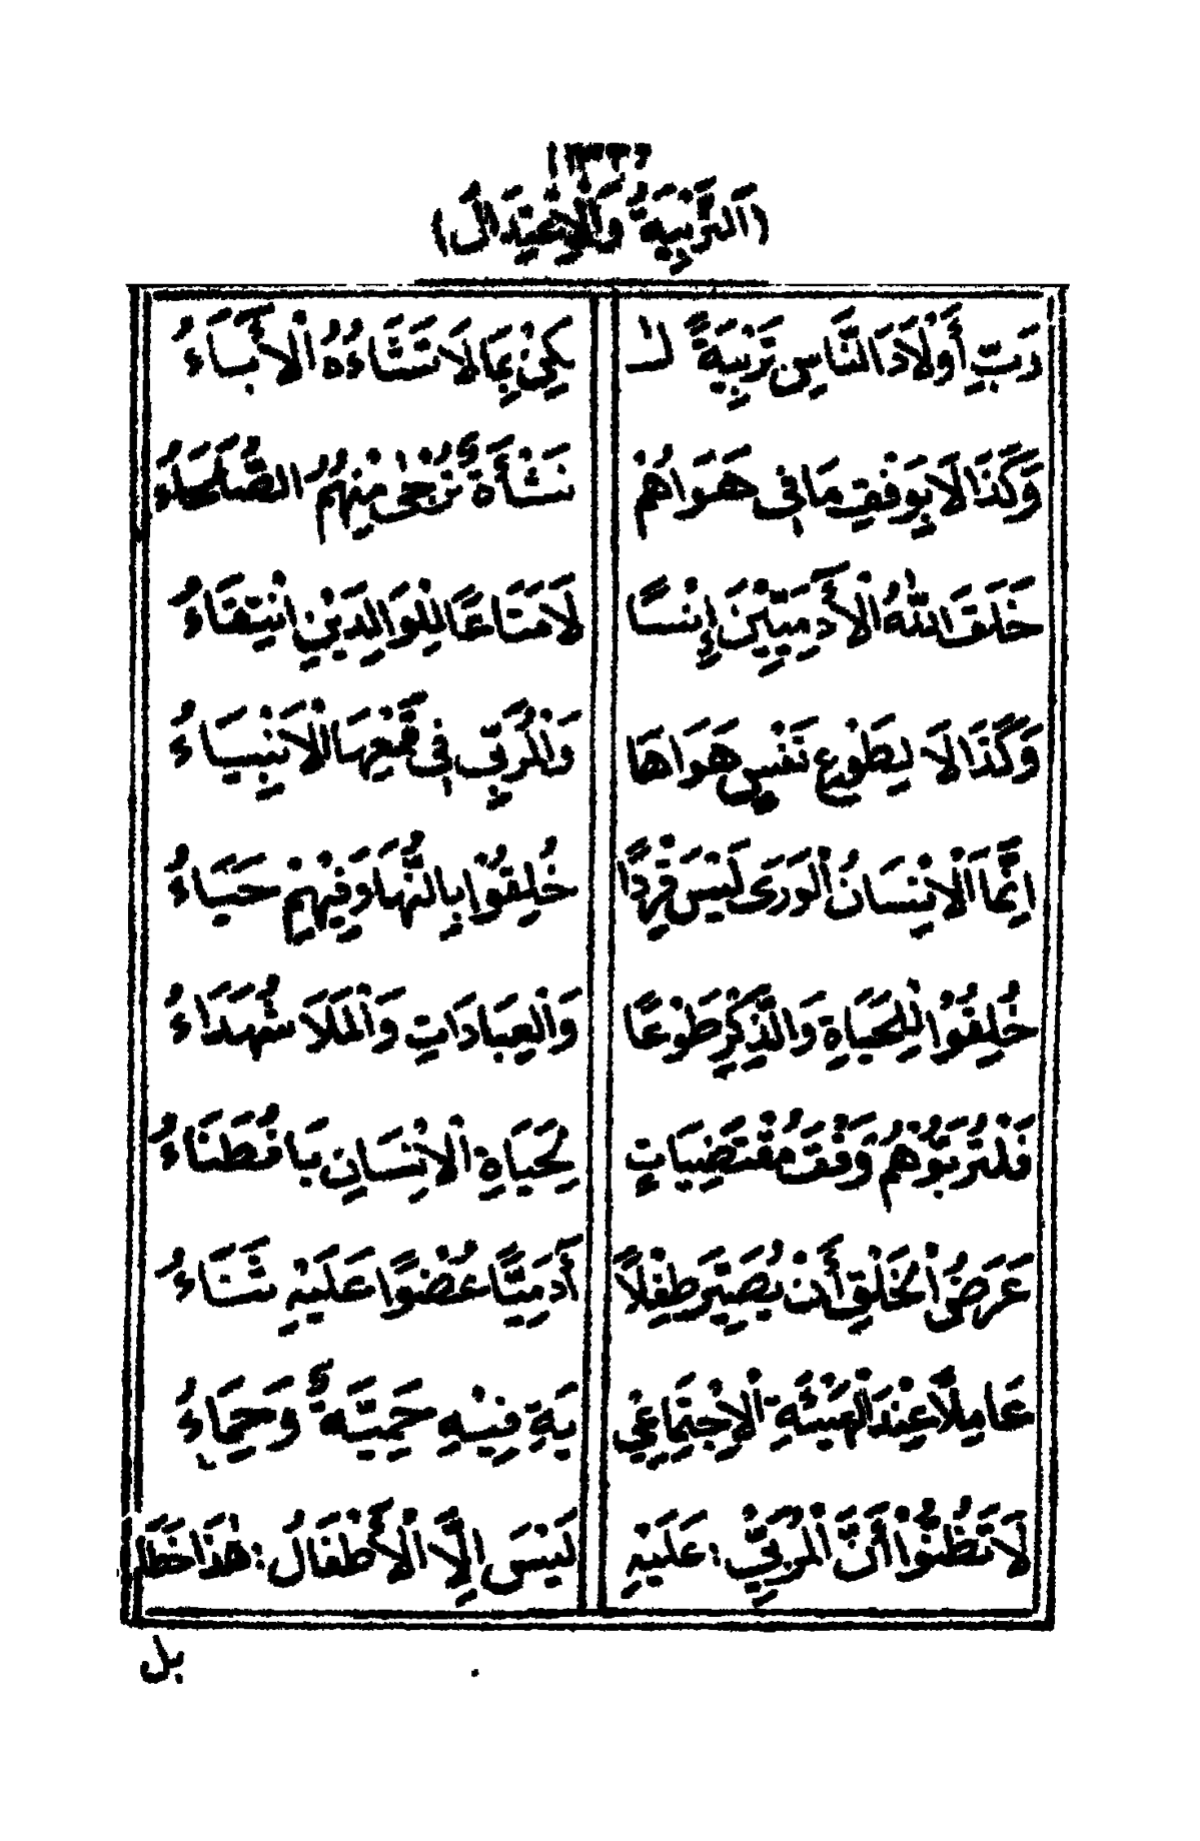 ١٣٣٦
(اَلتَّرْبِيَةُ وَالْاِعْتِدَالُ)
رَبِّ أَوْلَادَ النَّاسِ تَرْبِيَةً لـٰ كِنْ بِمَا لَا تَشَاءُهُ الْأَبَاءُ
وَكَذَا لَا بِوَفْقِ مَا فِى هَوَاهُمْ نَشْأَةً تُرْجٰى مِنْهُمُ الصُّلَحَاءُ
خَلَقَ اللّٰهُ الْأَدَمِيِّيْنَ إِنْسًا لَا مَتَاعًا لِلْوَالِدَيْنِ انْتِقَاءُ
وَكَذَا لَا لِطَوْعِ نَفْسٍ هَوَاهَا وَالْمُرَبِّى فِى قَمْعِهَا الْأَنْبِيَاءُ
اِنَّمَا الْاِنْسَانُ الْوَرَى لَيْسَ قِرْدًا خُلِقُوْا بِالنُّهَا وَفِيْهِمْ حَيَاءُ
خُلِقُوْا لِلْحَيَاةِ وَالذِّكْرِ طَوْعًا وَالْعِبَادَاتِ وَالْمَلَا شُهَدَاءُ
فَلْتُرَبُّوْهُمْ وَفْقَ مُقْتَضِيَاتٍ لِحَيَاةِ الْاِنْسَانِ يَا فُطَنَاءُ
غَرَضُ الْخَلْقِ أَنْ يُصَيَّرَ طِفْلًا أٰدَمِيًّا عُضْوًا عَلَيْهِ ثَنَاءُ
عَامِلًا عِنْدَ الْهَيْئَةِ الْاِجْتِمَاعِيـ يَةِ فِيْهِ حَمِيَّةٌ وَحِمَاءُ
لَا تَظُنُّوْا أَنَّ الْمُرَبِّيْ: عَلَيْهِ لَيْسَ اِلَّا الْأَطْفَالُ: هٰذَا خَطَاءُ
بل